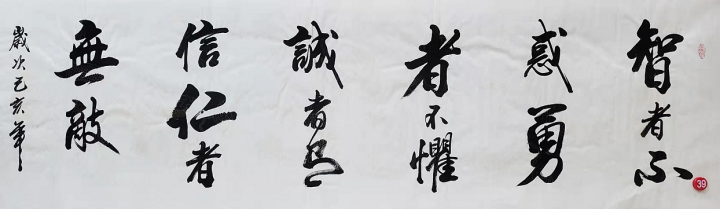 智者不
惑勇
者不懼
誠者有
信仁者
無敵
歲次己亥年
39